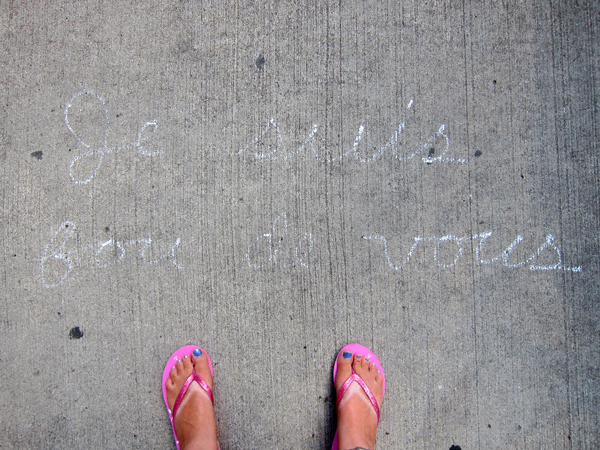 Je suis
fou de vous